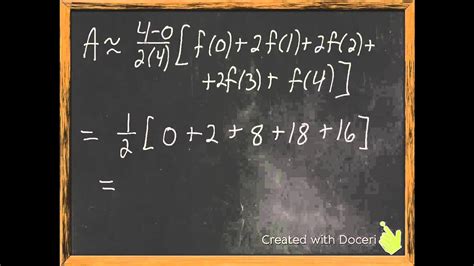 A ≈ 4-0/2(4) [f(0)+2f(1)+2f(2)+
+2f(3)+ f(4)]
= 1/2 [0+2+8+18+16]
=
Created with Doceri